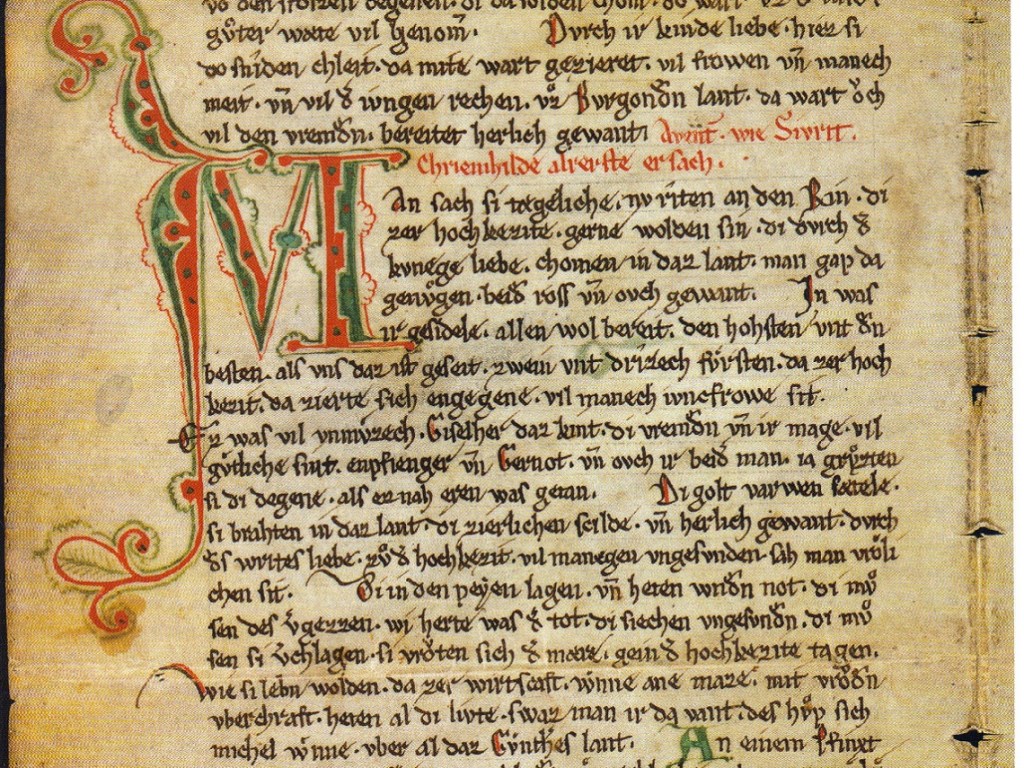 vo den stolzen degenen. di da wolden
gůter wæte vil genom̄. Dvrch ir kinde liebe. hiez si
do sniden chleit. da mite wart gezieret. vil frowen vn̄ manech
meit. vn̄ vil d̾ iungen rechen. vz̾ Bvrgondn̾ lant. da wart ovͦch
vil den vremdn̾. bereitet herlich gewant. Avent̾. wie Sivrit.
Chriemhilde alrerste ersach.
Man sach si tægeliche. nv riten an den Rin. di
zer hochkezite. gerne wolden sin. di dvrch d̾
kvnege liebe. chomen in daz lant. man gap da
genvͦgen. beid̾ ross vn̄ ovch gewant. In was
ir gesidele. allen wol bereit. den hohsten vnt dn̾
besten. als vns daz ist geseit. zwein vnt drizech fvrsten. da zer hoch
kezit. da zierte sich engegene. vil manech ivncfrowe sit.
Ez was vil vnmvͦzech. Giselher daz kint. di vremdn̾ vn̄ ir mage. vil
gvͦtliche sint. enpfienger vn̄ Gernot. vn̄ ovch ir beid̾ man. ia grvͦzten
si di degene. als ez nah eren was getan. Di golt varwen sætele.
si brahten in daz lant. di zierlichen scilde. vn̄ herlich gewant. dvrch
d̾s wirtes liebe. zvͦ d̾ hochkezit. vil manegen vngesvnden. sah man vrŏli
chen sit. Di in den peyen lagen. vn̄ heten wndn̾ not. di mvͦ
sen des v̾gezzen. wi herte was d̾ tot. di siechen vngesvndn̾. di mvͦ
sen si v̾chlagen. si vrŏten sich d̾ mære. gein d̾ hochkezite tagen.
wie si lebn̾ wolden. da zer wirtscaft. wnne ane maze. mit vrŏdn̾
vberchraft. heten al di livte. swaz man ir da vant. des hvͦp sich
michel wnne. vber al daz Gvnthes̾ lant. An einem Pfinxt